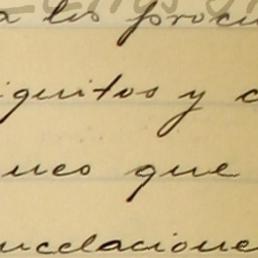 a los procu
iquitos y c
ues que
ucelacione